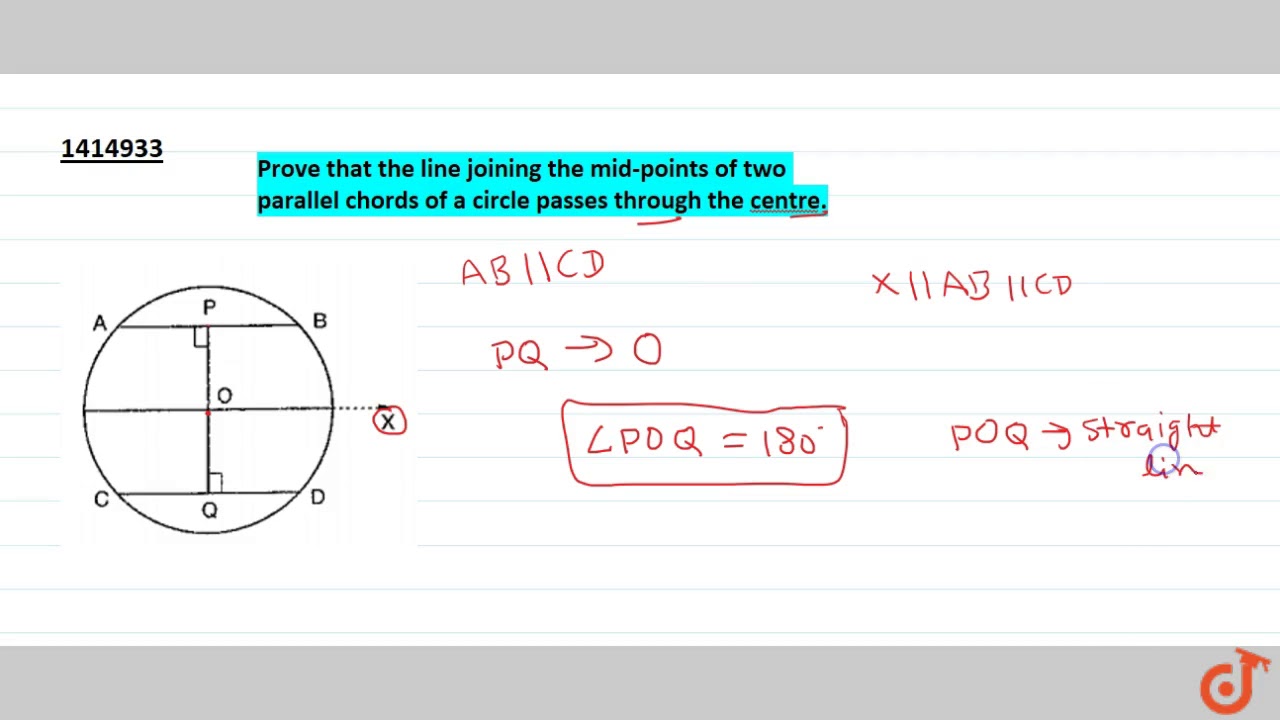 1414933
Prove that the line joining the mid-points of two
parallel chords of a circle passes through the centre.
AB||CD
X||AB||CD
P
A
B
PQ → O
O
X
∠POQ = 180°
POQ → straight
lin
C
Q
D